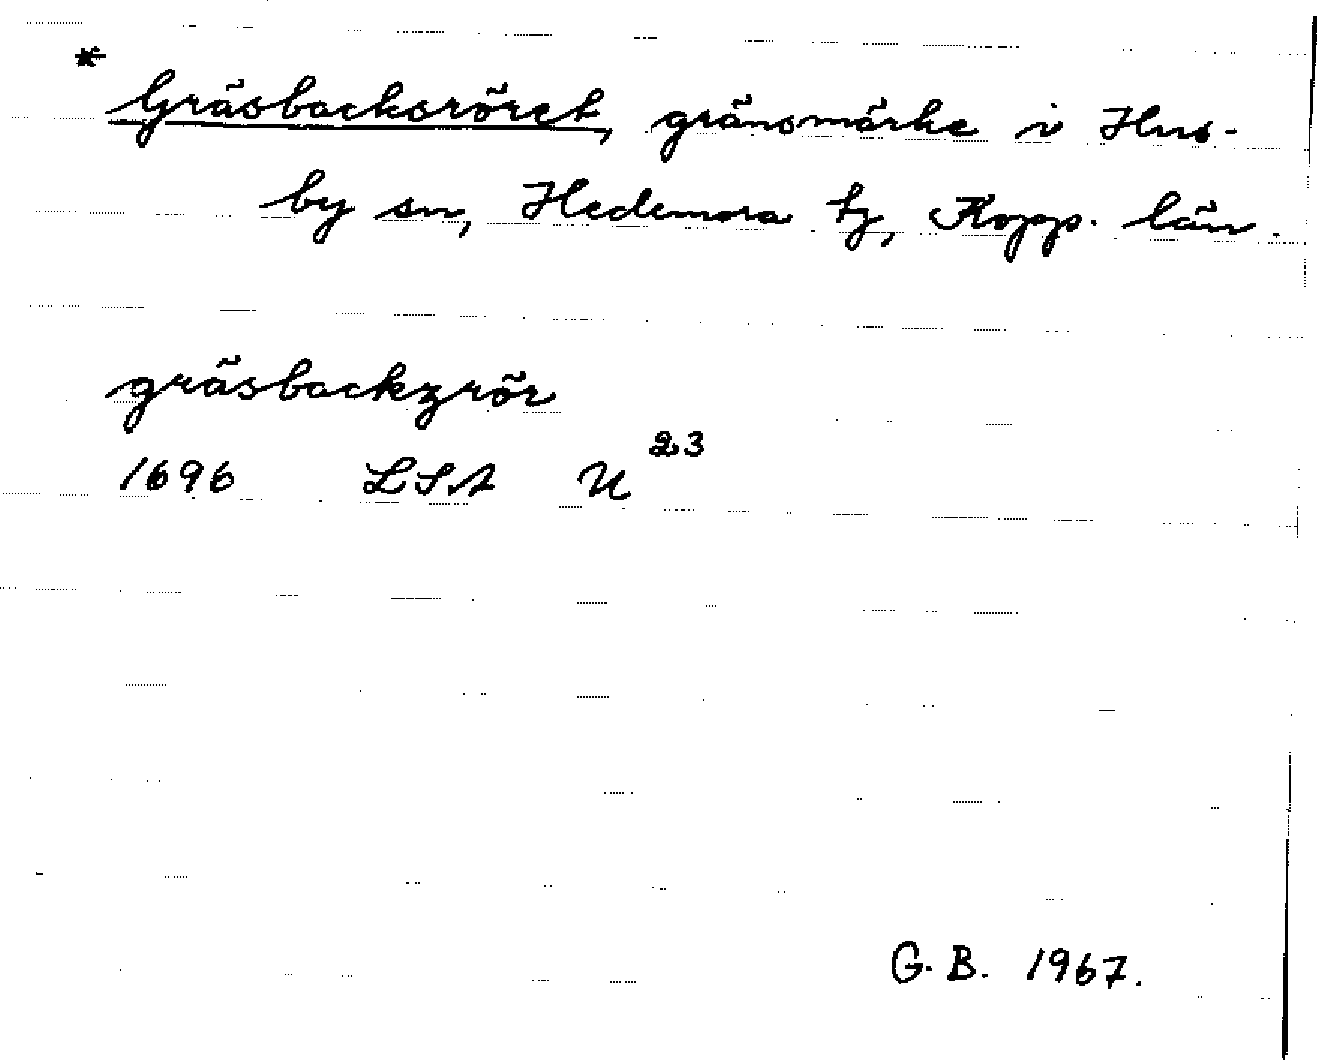 * Gräsbacksröret, gränsmärke i Hus-
by sn, Hedemora hg, Kopp. län.
gräsbackzrör
1696 LSA U²³
G. B. 1967.